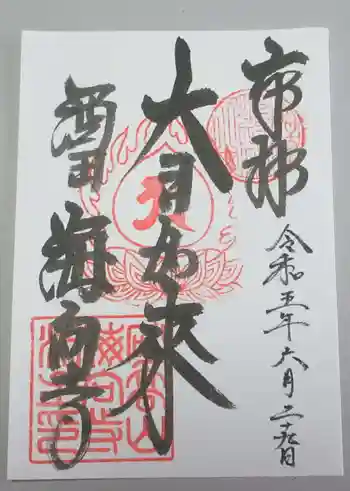 奉拝
令和五年六月二十
日
大日如来
酒田
海向寺